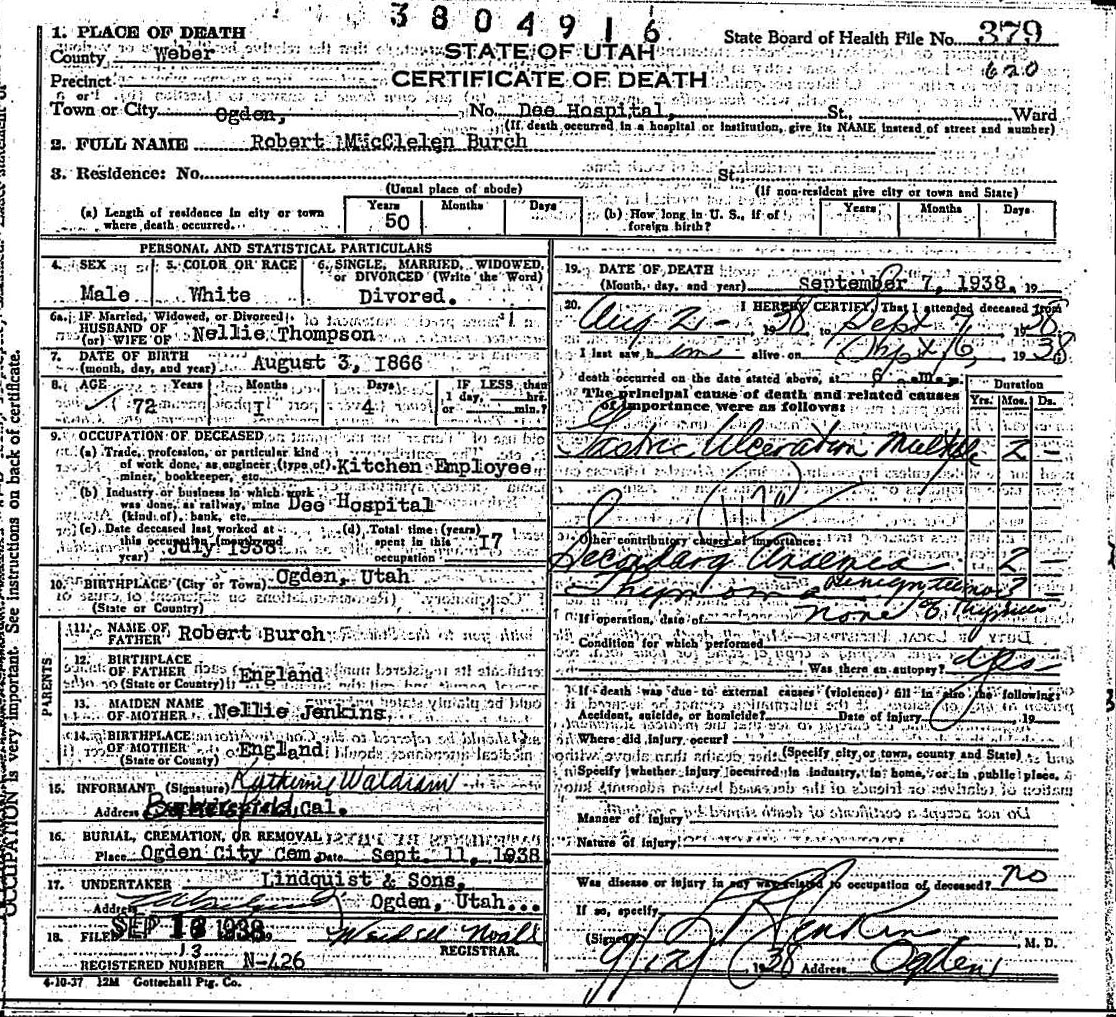 3804916
1. PLACE OF DEATH
STATE OF UTAH
State Board of Health File No. 379
County Weber
620
Precinct
CERTIFICATE OF DEATH
Town or City Ogden, No. Dee Hospital, St. Ward
(If death occurred in a hospital or institution, give its NAME instead of street and number)
2. FULL NAME Robert MacClelen Burch
3. Residence: No. St.
(Usual place of abode) (If non-resident give city or town and State)
(a) Length of residence in city or town where death occurred. Years 50 Months Days
(b) How long in U. S., if of foreign birth? Years Months Days
PERSONAL AND STATISTICAL PARTICULARS
4. SEX Male
5. COLOR OR RACE White
6. SINGLE, MARRIED, WIDOWED, or DIVORCED (Write the Word) Divored.
6a. IF Married, Widowed, or Divorced
HUSBAND OF (or) WIFE OF Nellie Thompson
7. DATE OF BIRTH (month, day, and year) August 3, 1866
8. AGE Years 72 Months I Days 4 IF LESS than 1 day, hrs. or min.?
9. OCCUPATION OF DECEASED
(a) Trade, profession, or particular kind of work done, as engineer (type of), miner, bookkeeper, etc. Kitchen Employee
(b) Industry or business in which work was done, as railway, mine (kind of), bank, etc. Dee Hospital
(c) Date deceased last worked at this occupation (month and year) July 1938
(d) Total time (years) spent in this occupation I7
10. BIRTHPLACE (City or Town) Ogden, Utah
(State or Country)
PARENTS
11. NAME OF FATHER Robert Burch
12. BIRTHPLACE OF FATHER (State or Country) England
13. MAIDEN NAME OF MOTHER Nellie Jenkins
14. BIRTHPLACE OF MOTHER (State or Country) England
15. INFORMANT (Signature) Katherine Waldram
Address Bakersfield, Cal.
16. BURIAL, CREMATION, OR REMOVAL
Place Ogden City Cem. Date Sept. 11, 1938
17. UNDERTAKER Lindquist & Sons,
Address Ogden, Utah...
18. FILED SEP 13 1938
13
REGISTRAR.
REGISTERED NUMBER N-426
4-10-37 12M Gottschall Ptg. Co.
19. DATE OF DEATH (Month, day, and year) September 7, 1938. 19
20. I HEREBY CERTIFY, That I attended deceased from
Aug 2 - 1938 to Sept 7, 1938
I last saw him alive on Sept 6, 1938
death occurred on the date stated above, at 6 m.
The principal cause of death and related causes of importance were as follows:
Duration
Yrs. Mos. Ds.
Gastric Ulceration Multiple 2 -
Other contributory causes of importance:
Secondary Anaemia 2 -
Thymoma benign tumor of Thymus
If operation, date of none
Condition for which performed
Was there an autopsy? yes
If death was due to external causes (violence) fill in also the following:
Accident, suicide, or homicide? Date of injury , 19
Where did injury occur?
(Specify city or town, county and State)
Specify whether injury occurred in industry, in home, or in public place.
Manner of injury
Nature of injury
Was disease or injury in any way related to occupation of deceased? no
If so, specify
(Signed) Jenkins M. D.
9/12/ 1938 Address Ogden
OCCUPATION is very important. See instructions on back of certificate.